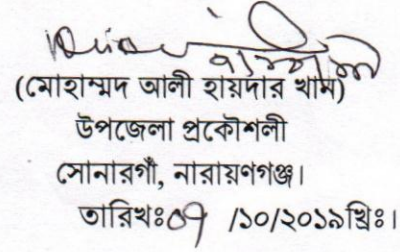 (মোহাম্মদ আলী হায়দার খান)
উপজেলা প্রকৌশলী
সোনারগাঁ, নারায়ণগঞ্জ।
তারিখঃ০৭ /১০/২০১৯খ্রিঃ।